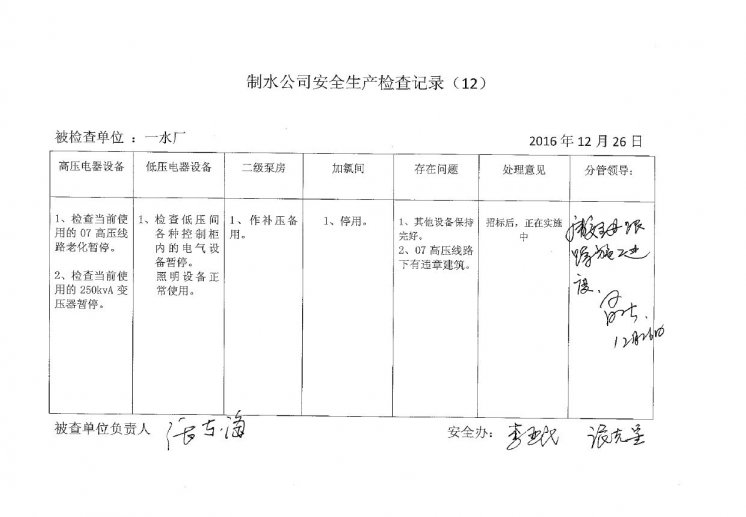 制水公司安全生产检查记录（12）
被检查单位 ：一水厂
2016 年 12 月 26 日
高压电器设备
低压电器设备
二级泵房
加氯间
存在问题
处理意见
分管领导：
1、检查当前使
用的 07 高压线
路老化暂停。
2、检查当前使
用的 250kvA 变
压器暂停。
1、检查低压间
各种控制柜
内的电气设
备暂停。
照明设备正
常使用。
1、作补压备
用。
1、停用。
1、其他设备保持
完好。
2、07 高压线路
下有违章建筑。
招标后，正在实施
中
度、
12月26日
被查单位负责人
安全办：